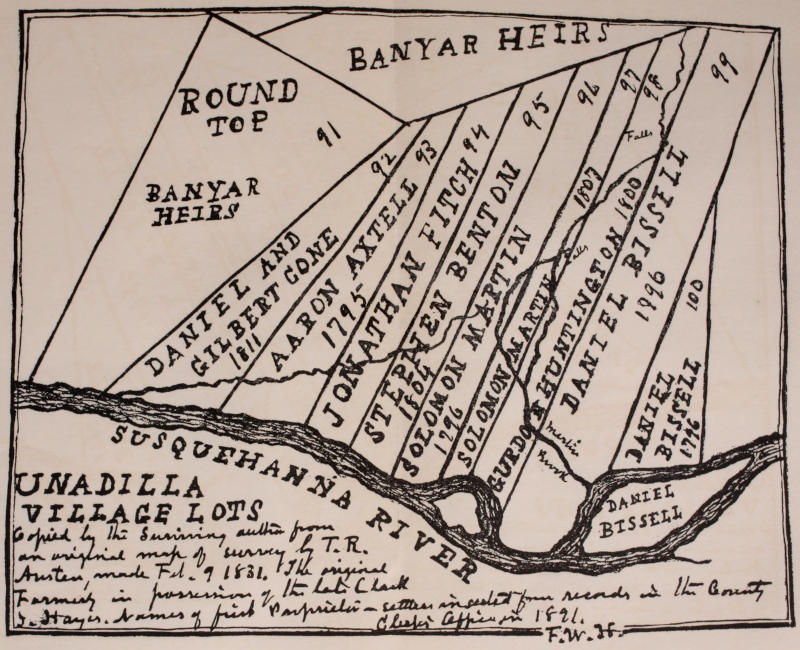 BANYAR HEIRS
ROUND
TOP
91
BANYAR
HEIRS
92
DANIEL AND
GILBERT CONE
1811
93
AARON AXTELL
1795
94
JONATHAN FITCH
95
STEPHEN BENTON
1804
96
SOLOMON MARTIN
1796
97
1807
SOLOMON MARTIN
98
Falls
Falls
GURDON HUNTINGTON 1800
99
DANIEL BISSELL
1796
100
DANIEL
BISSELL
1796
Martin
Brook
DANIEL
BISSELL
SUSQUEHANNA RIVER
UNADILLA
VILLAGE LOTS
Copied by the Surviving author from
an original map of survey by T.R.
Austen, made Feb. 9 1831. The original
Formerly in possession of the late Clark
I. Hayes. Names of first Proprietor-settlers inserted from records in the County
Clerk's Office in 1891.
F.W.H.